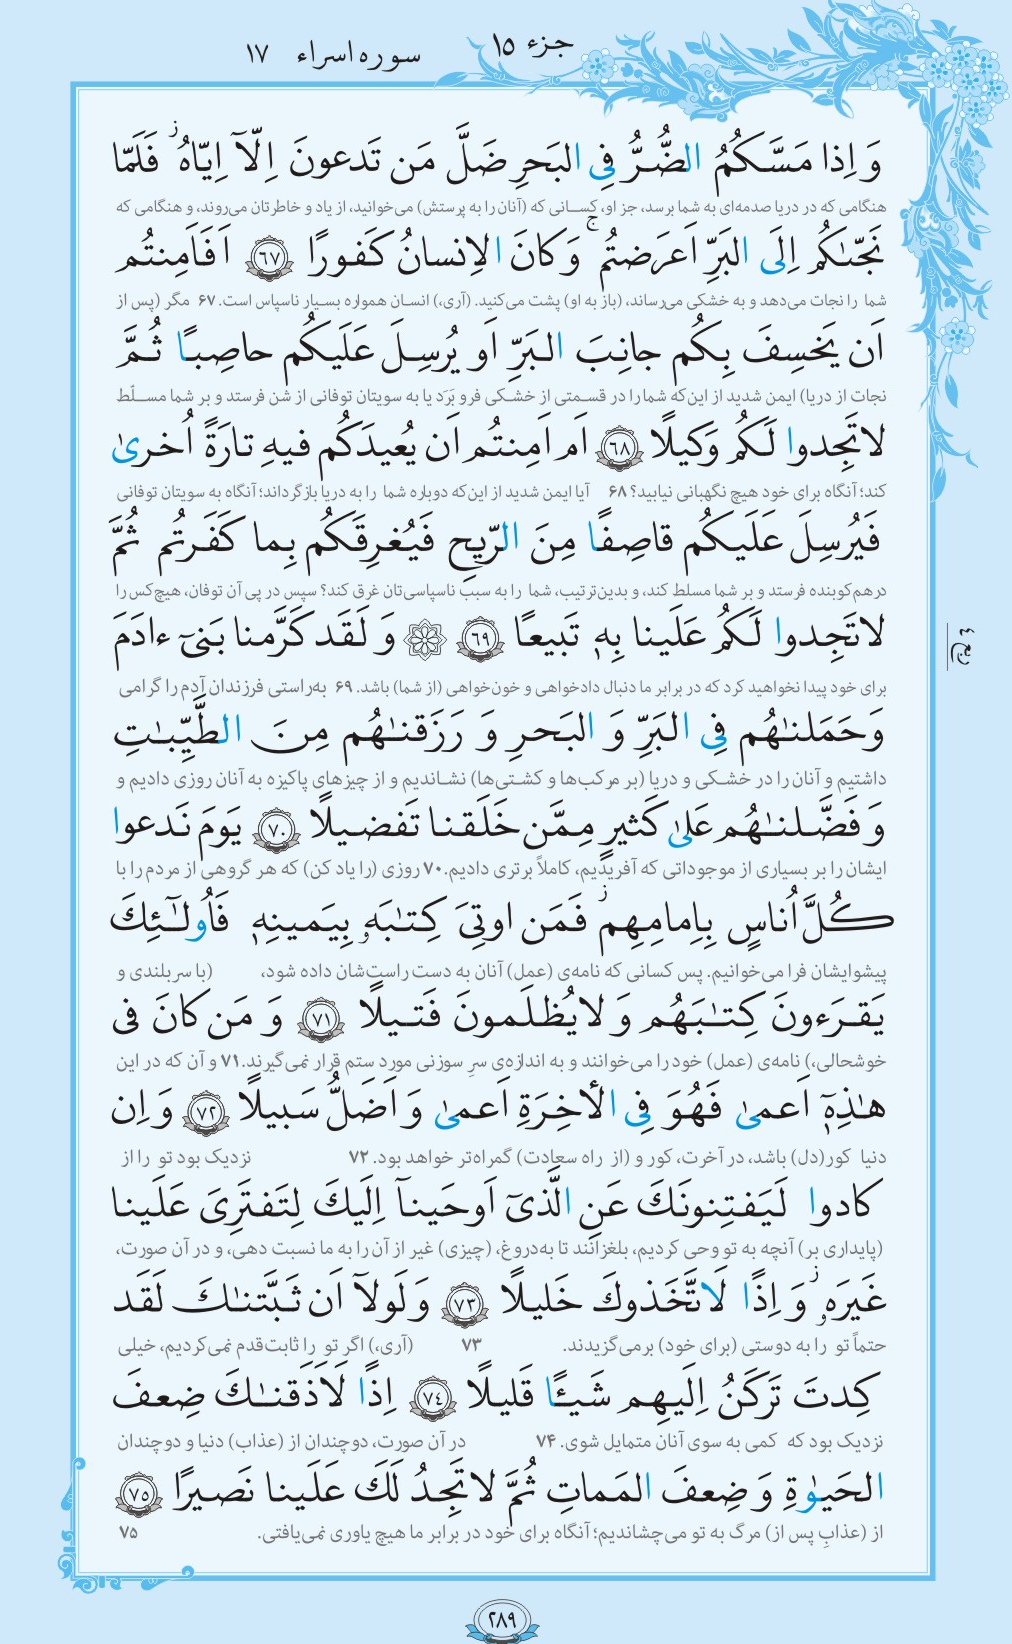 جزء ۱۵
سوره اسراء ۱۷
وَ اِذا مَسَّكُمُ الضُّرُّ فِى البَحرِ ضَلَّ مَن تَدعونَ اِلّآ اِيّاهُ ۖ فَلَمّا
هنگامی که در دریا صدمه‌ای به شما برسد، جز او، کسانی که (آنان را به پرستش) می‌خوانید، از یاد و خاطرتان می‌روند، و هنگامی که
نَجّىٰكُم اِلَى البَرِّ اَعرَضتُم ۚ وَ كانَ الاِنسانُ كَفورًا ٦٧ اَفَاَمِنتُم
شما را نجات می‌دهد و به خشکی می‌رساند، (باز به او) پشت می‌کنید. (آری،) انسان همواره بسیار ناسپاس است. ۶۷ مگر (پس از
اَن يَخسِفَ بِكُم جانِبَ البَرِّ اَو يُرسِلَ عَلَيكُم حاصِبًا ثُمَّ
نجات از دریا) ایمن شدید از این‌که شما را در قسمتی از خشکی فرو بَرَد یا به سویتان توفانی از شن فرستد و بر شما مسلّط
لاتَجِدوا لَكُم وَكيلًا ٦٨ اَم اَمِنتُم اَن يُعيدَكُم فيهِ تارَةً اُخرىٰ
کند؛ آنگاه برای خود هیچ نگهبانی نیابید؟ ۶۸ آیا ایمن شدید از این‌که دوباره شما را به دریا بازگرداند؛ آنگاه به سویتان توفانی
فَيُرسِلَ عَلَيكُم قاصِفًا مِنَ الرّيحِ فَيُغرِقَكُم بِما كَفَرتُم ثُمَّ
درهم‌کوبنده فرستد و بر شما مسلط کند، و بدین‌ترتیب، شما را به سبب ناسپاسی‌تان غرق کند؟ سپس در پی آن توفان، هیچ‌کس را
لاتَجِدوا لَكُم عَلَينا بِهٖ تَبيعًا ٦٩ وَ لَقَد كَرَّمنا بَنىٓ ءادَمَ
برای خود پیدا نخواهید کرد که در برابر ما دنبال دادخواهی و خون‌خواهی (از شما) باشد. ۶۹ به‌راستی فرزندان آدم را گرامی
ربع ٤
وَ حَمَلنٰهُم فِى البَرِّ وَ البَحرِ وَ رَزَقنٰهُم مِنَ الطَّيِّبٰتِ
داشتیم و آنان را در خشکی و دریا (بر مرکب‌ها و کشتی‌ها) نشاندیم و از چیزهای پاکیزه به آنان روزی دادیم و
وَ فَضَّلنٰهُم عَلىٰ كَثيرٍ مِمَّن خَلَقنا تَفضيلًا ٧٠ يَومَ نَدعوا
ایشان را بر بسیاری از موجوداتی که آفریدیم، کاملاً برتری دادیم. ۷۰ روزی (را یاد کن) که هر گروهی از مردم را با
كُلَّ اُناسٍ بِاِمامِهِم ۖ فَمَن اوتِىَ كِتٰبَهٗ بِيَمينِهٖ فَاُولٰٓئِكَ
پیشوایشان فرا می‌خوانیم. پس کسانی که نامه‌ی (عمل) آنان به دست راست‌شان داده شود، (با سربلندی و
يَقرَءونَ كِتٰبَهُم وَ لايُظلَمونَ فَتيلًا ٧١ وَ مَن كانَ فى
خوشحالی،) نامه‌ی (عمل) خود را می‌خوانند و به اندازه‌ی سرِ سوزنی مورد ستم قرار نمی‌گیرند. ۷۱ و آن که در این
هٰذِهٖٓ اَعمىٰ فَهُوَ فِى الأخِرَةِ اَعمىٰ وَ اَضَلُّ سَبيلًا ٧٢ وَ اِن
دنیا کور(دل) باشد، در آخرت، کور و (از راه سعادت) گمراه‌تر خواهد بود. ۷۲ نزدیک بود تو را از
كادوا لَيَفتِنونَكَ عَنِ الَّذىٓ اَوحَينآ اِلَيكَ لِتَفتَرِىَ عَلَينا
(پایداری بر) آنچه به تو وحی کردیم، بلغزانند تا به‌دروغ، (چیزی) غیر از آن را به ما نسبت دهی، و در آن صورت،
غَيرَهٗ ۖ وَ اِذًا لَاتَّخَذوكَ خَليلًا ٧٣ وَ لَولآ اَن ثَبَّتنٰكَ لَقَد
حتماً تو را به دوستی (برای خود) برمی‌گزیدند. ۷۳ (آری،) اگر تو را ثابت‌قدم نمی‌کردیم، خیلی
كِدتَ تَركَنُ اِلَيهِم شَيـًٔا قَليلًا ٧٤ اِذًا لَاَذَقنٰكَ ضِعفَ
نزدیک بود که کمی به سوی آنان متمایل شوی. ۷۴ در آن صورت، دوچندان از (عذاب) دنیا و دوچندان
الحَيوٰةِ وَ ضِعفَ المَماتِ ثُمَّ لاتَجِدُ لَكَ عَلَينا نَصيرًا ٧٥
از (عذابِ پس از) مرگ به تو می‌چشاندیم؛ آنگاه برای خود در برابر ما هیچ یاوری نمی‌یافتی. ۷۵
۲۸۹